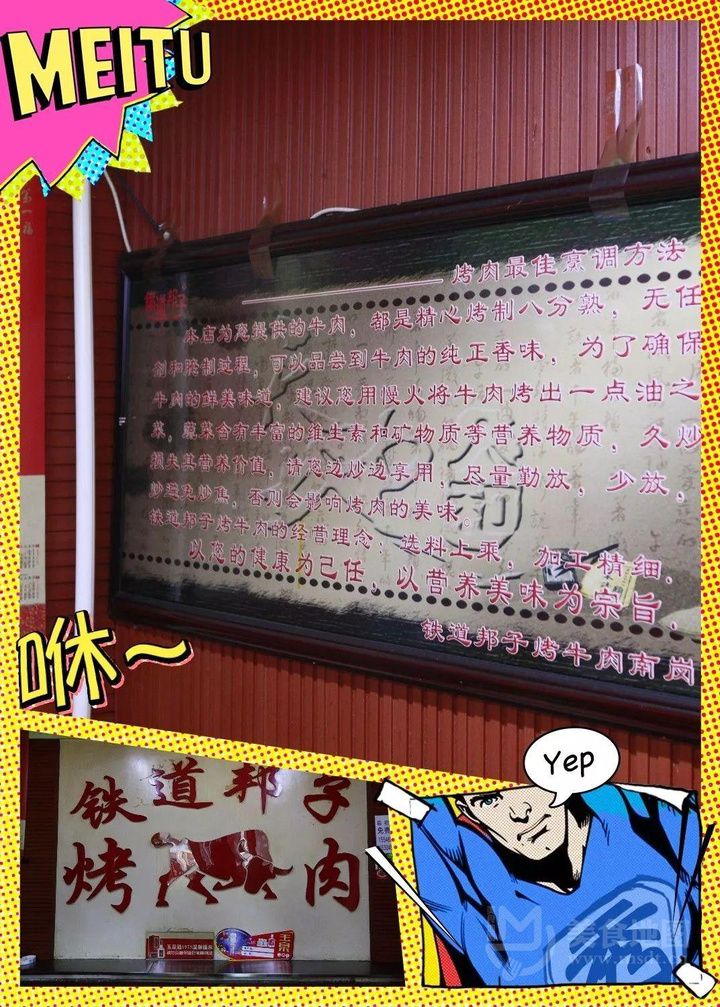 MEITU
烤肉最佳烹调方法
铁道邦子
本店为您提供的牛肉，都是精心烤制八分熟，无任
剂和腌制过程，可以品尝到牛肉的纯正香味，为了确保
牛肉的鲜美味道，建议您用慢火将牛肉烤出一点油之
菜，蔬菜含有丰富的维生素和矿物质等营养物质，久炒
损失其营养价值，请您边炒边享用，尽量勤放，少放，
炒避免炒焦，否则会影响烤肉的美味。
铁道邦子烤牛肉的经营理念：选料上乘，加工精细.
以您的健康为己任，以营养美味为宗旨.
铁道邦子烤牛肉南岗
咻~
Yep
铁道邦子
烤肉
美食地图
www.msdt.cn